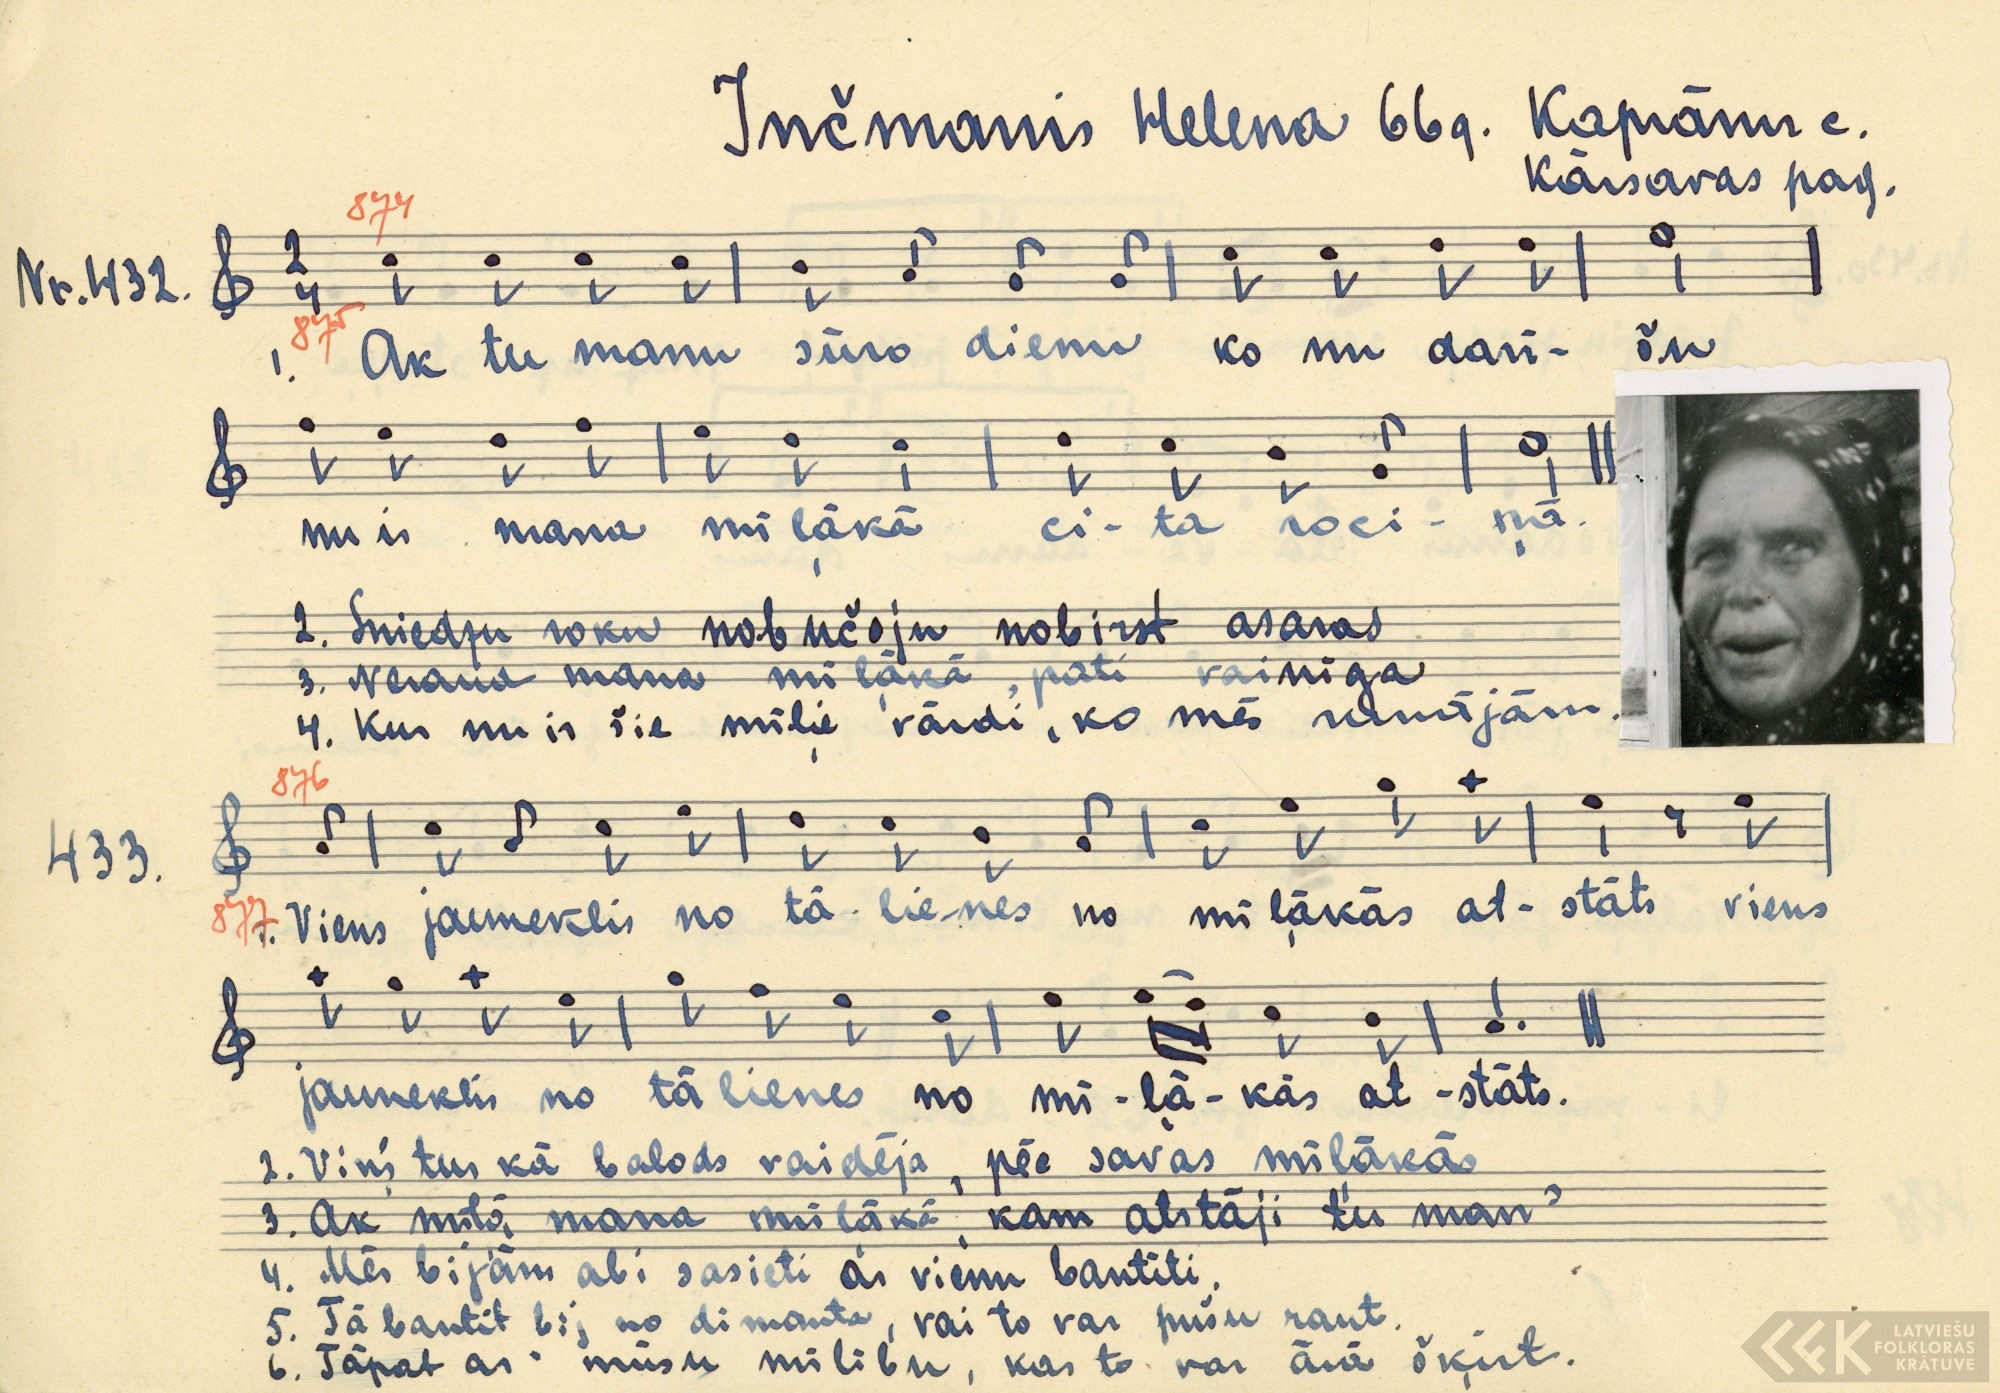 Inčmanis Helena 66g. Kapūānu c.
Kārsavas pag.
874
Nr. 432.
2
4
875
1. Ak tu manu sūro dienu ko nu darī- šu
nu ir mana mīļākā ci-ta roci- ņā.
2. Sniedzu roku nobučoju nobirst asaras
3. Neraua mana mīļākā, pati vainiga
4. Kur nu ir šie mīļie vārdi, ko mēs runājām.
876
433.
877
1. Viens jauneklis no tā-lie-nes no mīļākās at-stāts viens
jauneklis no tālienes no mī-ļā-kās at-stāts.
2. Viņš tur kā balods vaidēja, pēc savas mīļākās
3. Ak mīļā mana mīļākā, kam atstāji tu man'
4. Mēs bijām abi sasieti ar vienu bantīti.
5. Tā bantīt bij no dimanta, vai to var pušu raut.
6. Tāpat ar mūsu mīlību, kas to var ārā šķirt.
LATVIEŠU
FOLKLORAS
KRĀTUVE